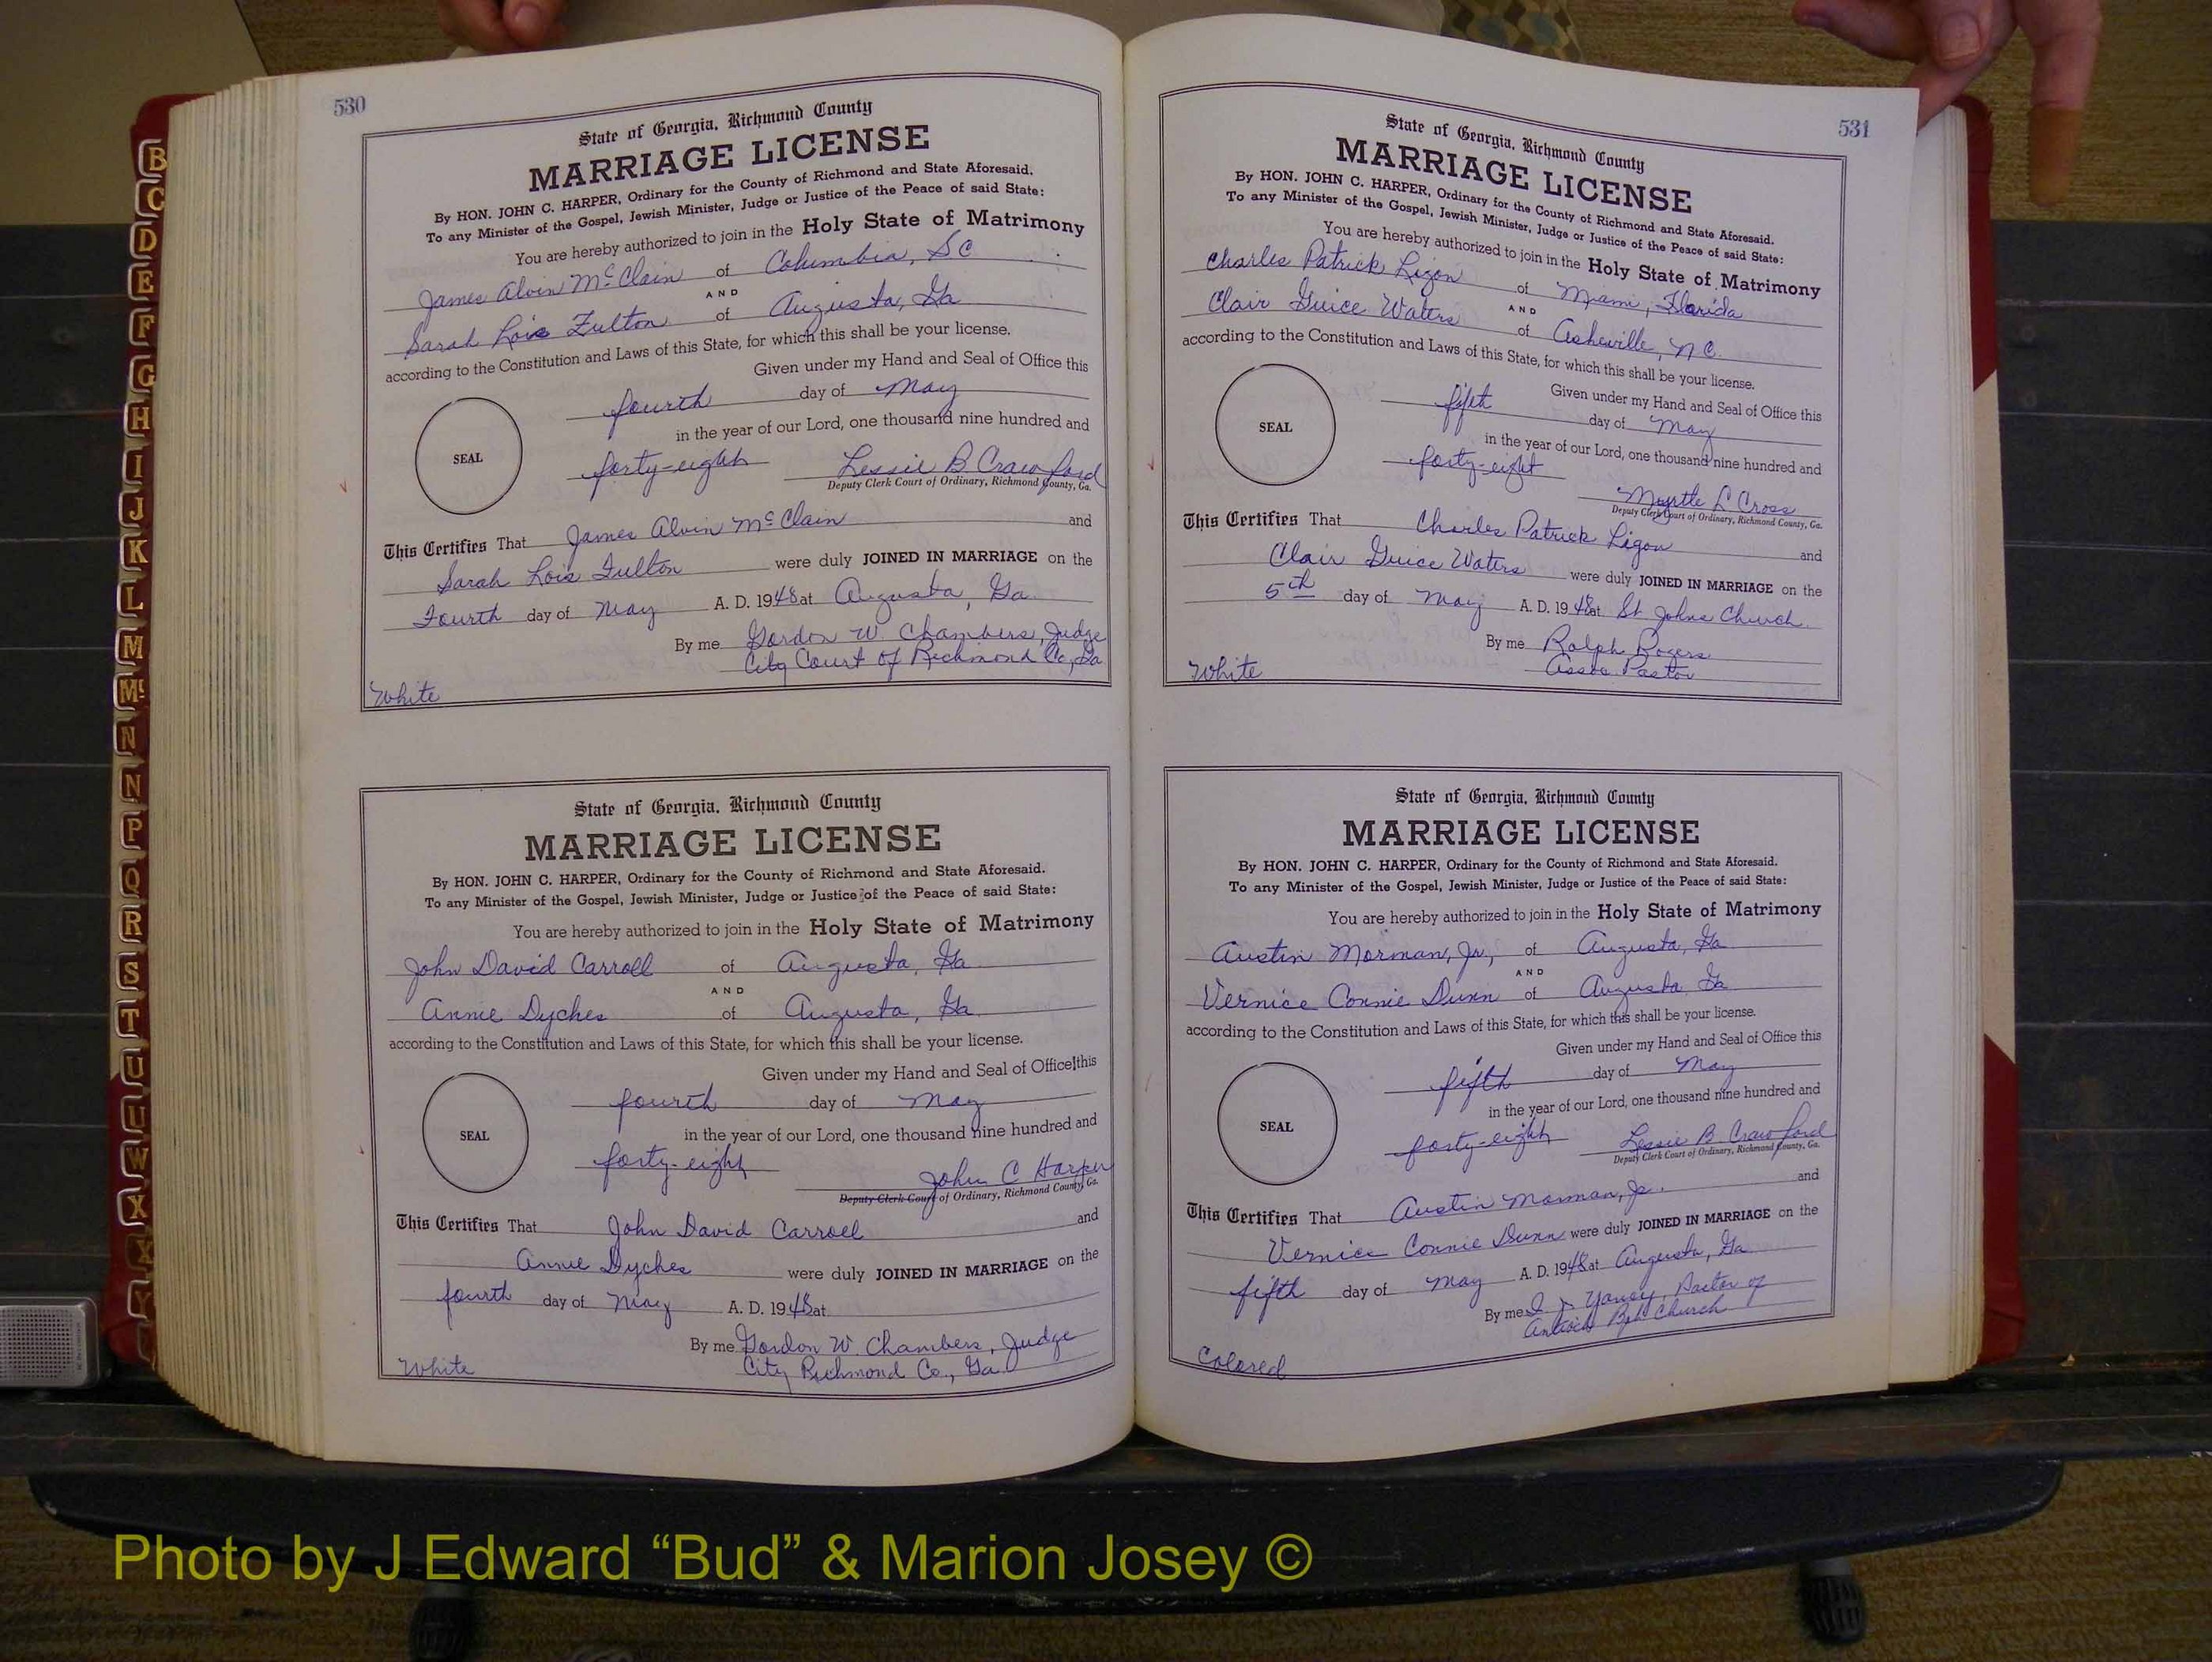 530
State of Georgia, Richmond County
MARRIAGE LICENSE
By HON. JOHN C. HARPER, Ordinary for the County of Richmond and State Aforesaid.
To any Minister of the Gospel, Jewish Minister, Judge or Justice of the Peace of said State:
You are hereby authorized to join in the Holy State of Matrimony
James Alvin McClain of Columbia, SC
AND
Sarah Lois Fulton of Augusta, Ga
according to the Constitution and Laws of this State, for which this shall be your license.
Given under my Hand and Seal of Office this
fourth day of May
in the year of our Lord, one thousand nine hundred and
SEAL
forty-eight Lessie B Crawford
Deputy Clerk Court of Ordinary, Richmond County, Ga.
This Certifies That James Alvin McClain and
Sarah Lois Fulton were duly JOINED IN MARRIAGE on the
Fourth day of May A. D. 1948 at Augusta, Ga.
By me Gordon W. Chambers, Judge
City Court of Richmond Co, Ga
White
State of Georgia, Richmond County
MARRIAGE LICENSE
By HON. JOHN C. HARPER, Ordinary for the County of Richmond and State Aforesaid.
To any Minister of the Gospel, Jewish Minister, Judge or Justice of the Peace of said State:
You are hereby authorized to join in the Holy State of Matrimony
John David Carroll of Augusta, Ga
AND
Annie Dyches of Augusta, Ga.
according to the Constitution and Laws of this State, for which this shall be your license.
Given under my Hand and Seal of Office this
fourth day of May
SEAL
in the year of our Lord, one thousand nine hundred and
forty-eight John C Harper
Deputy Clerk Court of Ordinary, Richmond County, Ga.
This Certifies That John David Carroll and
Annie Dyches were duly JOINED IN MARRIAGE on the
fourth day of May A. D. 1948 at
By me Gordon W. Chambers, Judge
City Richmond Co., Ga.
White
531
State of Georgia, Richmond County
MARRIAGE LICENSE
By HON. JOHN C. HARPER, Ordinary for the County of Richmond and State Aforesaid.
To any Minister of the Gospel, Jewish Minister, Judge or Justice of the Peace of said State:
You are hereby authorized to join in the Holy State of Matrimony
Charles Patrick Ligon of Miami, Florida
AND
Clair Guice Waters of Asheville, N.C.
according to the Constitution and Laws of this State, for which this shall be your license.
Given under my Hand and Seal of Office this
fifth day of May
SEAL
in the year of our Lord, one thousand nine hundred and
forty-eight Myrtle L Cross
Deputy Clerk Court of Ordinary, Richmond County, Ga.
This Certifies That Charles Patrick Ligon and
Clair Guice Waters were duly JOINED IN MARRIAGE on the
5th day of May A. D. 1948 at St Johns Church.
By me Ralph Rogers
Assoc Pastor
White
State of Georgia, Richmond County
MARRIAGE LICENSE
By HON. JOHN C. HARPER, Ordinary for the County of Richmond and State Aforesaid.
To any Minister of the Gospel, Jewish Minister, Judge or Justice of the Peace of said State:
You are hereby authorized to join in the Holy State of Matrimony
Austin Morman, Jr., of Augusta, Ga
AND
Vernice Connie Dunn of Augusta Ga
according to the Constitution and Laws of this State, for which this shall be your license.
Given under my Hand and Seal of Office this
fifth day of May
in the year of our Lord, one thousand nine hundred and
SEAL
forty-eight Lessie B Crawford
Deputy Clerk Court of Ordinary, Richmond County, Ga.
This Certifies That Austin Morman, Jr. and
Vernice Connie Dunn were duly JOINED IN MARRIAGE on the
fifth day of May A. D. 1948 at Augusta, Ga
By me Yancy, Pastor of
Antioch Bpt Church
Colored
B
C
D
E
F
G
H
I
J
K
L
M
Mc
N
N
P
Q
R
S
T
U
U
W
X
X
Y
Photo by J Edward “Bud” & Marion Josey ©